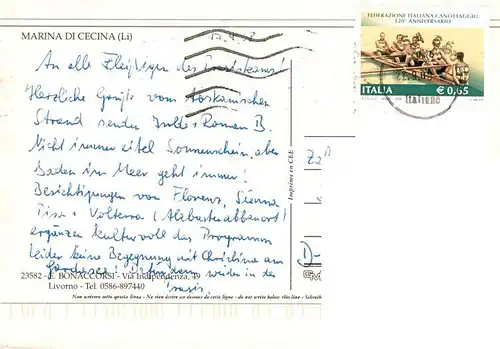 MARINA DI CECINA (Li)
FEDERAZIONE ITALIANA CANOTTAGGIO
120° ANNIVERSARIO
ITALIA € 0,65
Italiane
An alle Fleißigen des
Herzliche Grüße vom Toskanischen
Strand senden + Roman B.
Nicht immer eitel Sonnenschein, aber
Baden im Meer geht immer!
Besichtigungen von Florenz, Sienna
Pisa + Volterra (Alabasterabbauort)
ergänzen kulturvoll das Programm
leider keine Begegnung mit Christina am
Gardasee! wieder in der
Praxis.
23582 - E. BONACCORSI - Via Indipendenza, 49
Livorno - Tel. 0586-897440
Non scrivere sotto questa linea - Ne rien écrire au dessous de cette ligne - do not write below this line - Schreib
Imprimé en CEE
D-